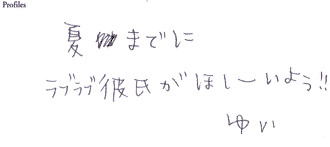 Profiles
夏までに
ラブラブ彼氏がほしーいよう!!
ゆい